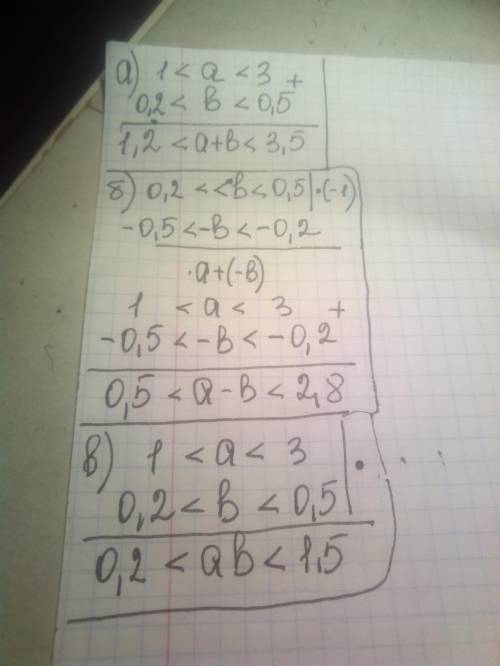 а) 1 < a < 3 +
0,2 < в < 0,5
1,2 < a+в < 3,5
б) 0,2 < <в < 0,5 | ·(-1)
-0,5 < -в < -0,2
·a+(-в)
1 < a < 3 +
-0,5 < -в < -0,2
0,5 < a-в < 2,8
в) 1 < a < 3
0,2 < в < 0,5 | ·
0,2 < aв < 1,5